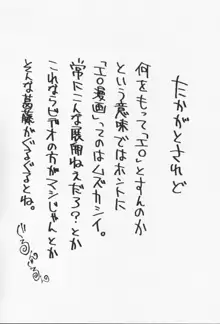 たかがとされど
何をもって「エロ」とすんのか
という意味ではホントに
「エロ漫画」ってのはムズカシイ。
常にこんな展開ねえだろ?とか
これならビデオの方がマシじゃんとか
そんな葛藤がぐるぐるとね。
ぐるぐる